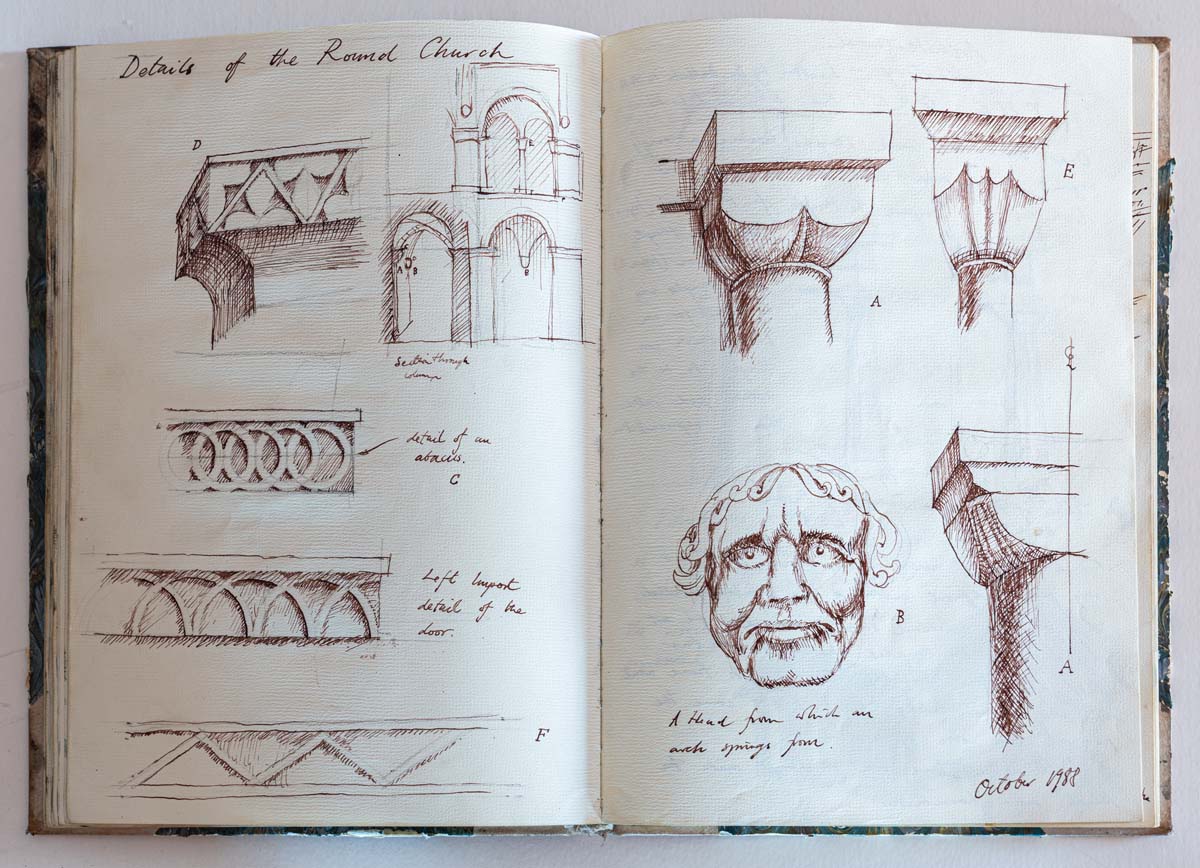 Details of the Round Church
D
E
A
B
B
Section through
column
detail of an
abacus.
C
Left Impost
detail of the
door.
F
A
E
B
A Head from which an
arch springs from.
C L
A
October 1988